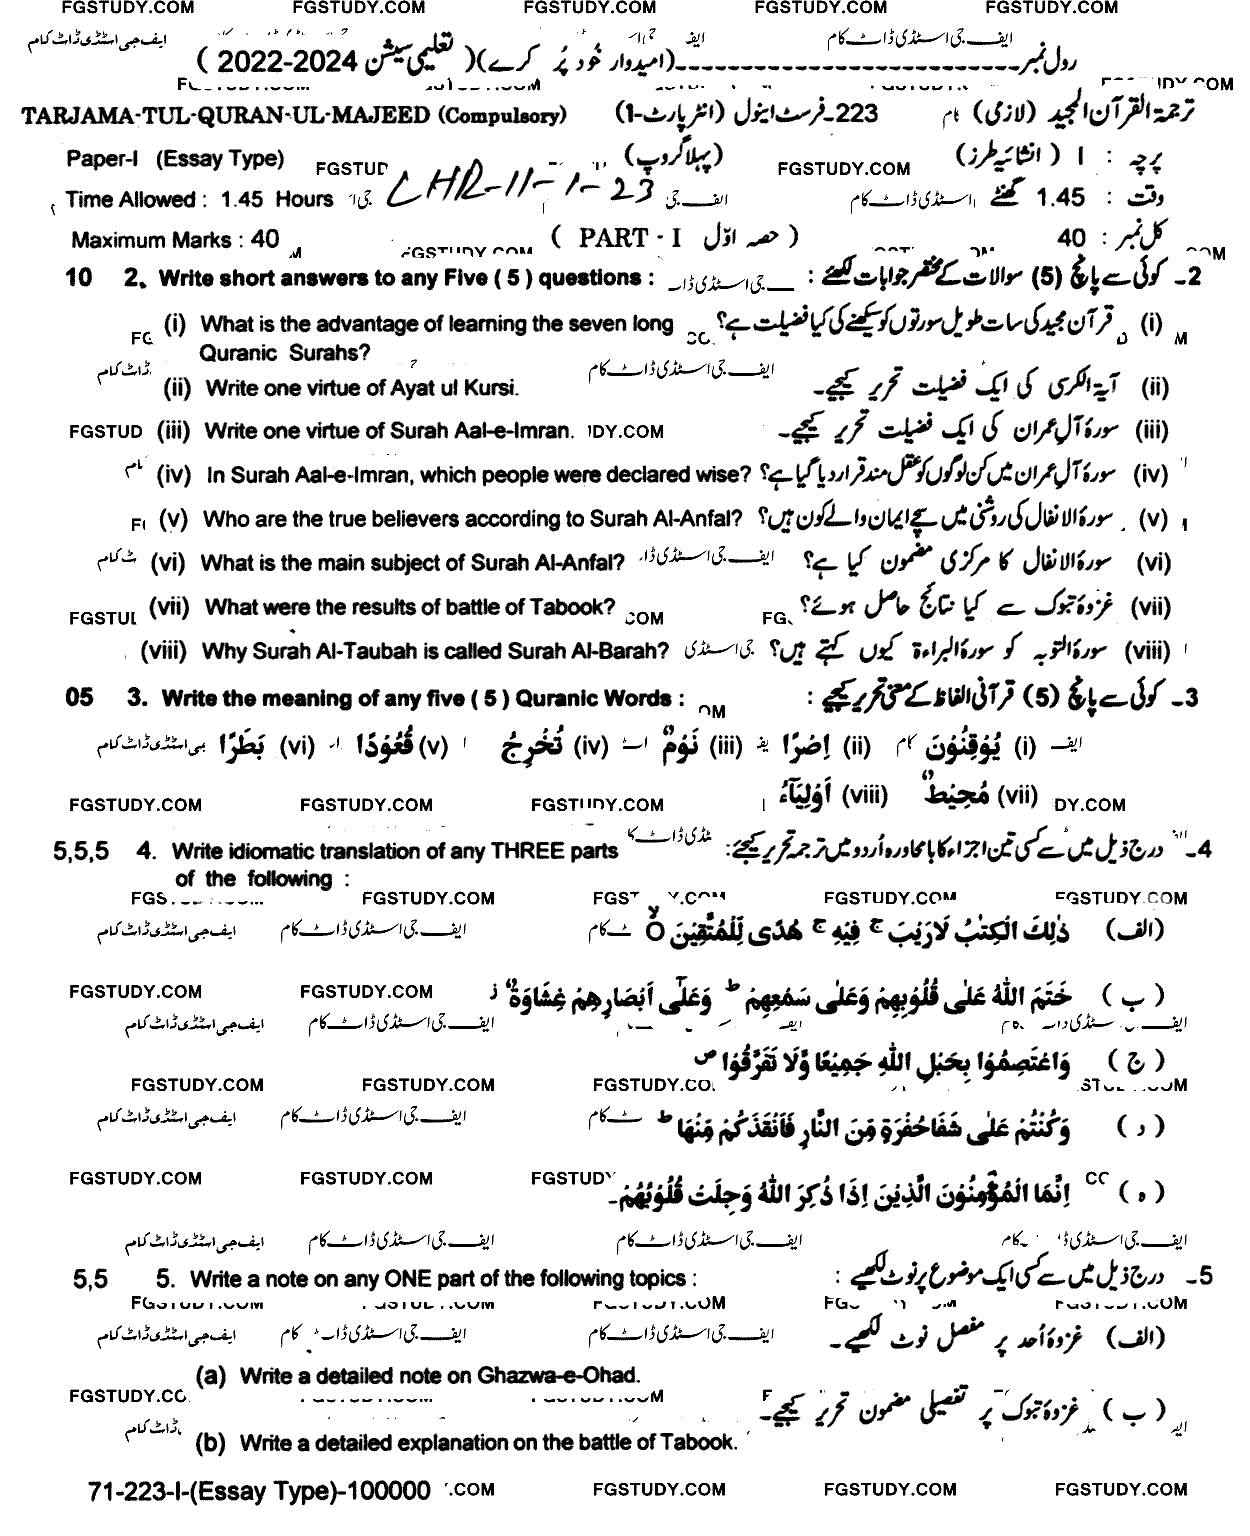 FGSTUDY.COM FGSTUDY.COM FGSTUDY.COM FGSTUDY.COM FGSTUDY.COM
رول نمبر ـــــــــــــــــ (امیدوار خود پُر کرے) ( تعلیمی سیشن 2024-2022 )
TARJAMA-TUL-QURAN-UL-MAJEED (Compulsory) 223ـ فرسٹ ایئول (انٹر پارٹ-1) ترجمۃ القرآن المجید (لازمی)
Paper-I (Essay Type) (پہلا گروپ) پرچہ : I ( انشائیہ طرز )
FGSTUDY.COM
Time Allowed : 1.45 Hours LHR-11-1-23 وقت : 1.45 گھنٹے
Maximum Marks : 40 ( PART - I حصہ اوّل ) کل نمبر : 40
10 2. Write short answers to any Five ( 5 ) questions : 2ـ کوئی سے پانچ (5) سوالات کے مختصر جوابات لکھئے :
(i) What is the advantage of learning the seven long (i) قرآن مجید کی سات طویل سورتوں کو سیکھنے کی کیا فضیلت ہے؟
Quranic Surahs?
(ii) Write one virtue of Ayat ul Kursi. (ii) آیۃ الکرسی کی ایک فضیلت تحریر کیجیے۔
(iii) Write one virtue of Surah Aal-e-Imran. (iii) سورۃ آل عمران کی ایک فضیلت تحریر کیجیے۔
(iv) In Surah Aal-e-Imran, which people were declared wise? (iv) سورۃ آل عمران میں کن لوگوں کو عقل مند قرار دیا گیا ہے؟
(v) Who are the true believers according to Surah Al-Anfal? (v) سورۃ الانفال کی روشنی میں سچے ایمان والے کون ہیں؟
(vi) What is the main subject of Surah Al-Anfal? (vi) سورۃ الانفال کا مرکزی مضمون کیا ہے؟
(vii) What were the results of battle of Tabook? (vii) غزوۂ تبوک سے کیا نتائج حاصل ہوئے؟
(viii) Why Surah Al-Taubah is called Surah Al-Barah? (viii) سورۃ التوبہ کو سورۃ البراءۃ کیوں کہتے ہیں؟
05 3. Write the meaning of any five ( 5 ) Quranic Words : 3ـ کوئی سے پانچ (5) قرآنی الفاظ کے معنی تحریر کیجیے :
(i) يُوْقِنُوْنَ (ii) اِصْرًا (iii) نَوْمٌ (iv) تُخْرِجُ (v) قُعُوْدًا (vi) بَطَرًا
(vii) مُحِيْطٌ (viii) اَوْلِيَآءُ
FGSTUDY.COM FGSTUDY.COM FGSTUDY.COM
5,5,5 4. Write idiomatic translation of any THREE parts 4ـ درج ذیل میں سے کسی تین اجزاء کا بامحاورہ اُردو میں ترجمہ تحریر کیجیے:
of the following :
FGSTUDY.COM FGSTUDY.COM FGSTUDY.COM
(الف) ذٰلِكَ الْكِتٰبُ لَارَيْبَ ۚ فِيْهِ ۚ هُدًى لِّلْمُتَّقِيْنَ O
FGSTUDY.COM FGSTUDY.COM
( ب ) خَتَمَ اللهُ عَلٰى قُلُوْبِهِمْ وَعَلٰى سَمْعِهِمْ ؕ وَعَلٰٓى اَبْصَارِهِمْ غِشَاوَةٌ ز
ایف جی اسٹڈی ڈاٹ کام ایف جی اسٹڈی ڈاٹ کام
( ج ) وَاعْتَصِمُوْا بِحَبْلِ اللهِ جَمِيْعًا وَّلَا تَفَرَّقُوْا ص
FGSTUDY.COM FGSTUDY.COM
( د ) وَكُنْتُمْ عَلٰى شَفَاحُفْرَةٍ مِّنَ النَّارِ فَاَنْقَذَكُمْ مِّنْهَا ؕ
FGSTUDY.COM FGSTUDY.COM
( ہ ) اِنَّمَا الْمُؤْمِنُوْنَ الَّذِيْنَ اِذَا ذُكِرَ اللهُ وَجِلَتْ قُلُوْبُهُمْ۔
ایف جی اسٹڈی ڈاٹ کام ایف جی اسٹڈی ڈاٹ کام ایف جی اسٹڈی ڈاٹ کام
5,5 5. Write a note on any ONE part of the following topics : 5ـ درج ذیل میں سے کسی ایک موضوع پر نوٹ لکھیے :
(الف) غزوۂ اُحد پر مفصل نوٹ لکھیے۔
(a) Write a detailed note on Ghazwa-e-Ohad.
( ب ) غزوۂ تبوک پر تفصیلی مضمون تحریر کیجیے۔
(b) Write a detailed explanation on the battle of Tabook.
71-223-I-(Essay Type)-100000 FGSTUDY.COM FGSTUDY.COM FGSTUDY.COM